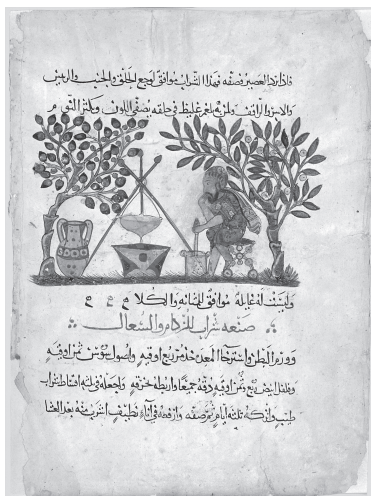 فاذا برد العصير فصفه فهذا الشراب موافق لوجع الحلق والجنب
ولمن به بلغم غليظ في حلقه يصفي اللون ويكثر النوم
وليست له غايلة موافق للمثانه والكلا
صنعه شراب للزكام والسعال
وورم البطن واسترخا المعده خذ مر ربع اوقيه واصول سوسن ثمن اوقيه
وفلفل ابيض ربع وثمن اوقيه ودقه جميعا واربطه بخرقه واجعله في ثلثه اقساط شراب
طيب واتركه ثلثه ايام ثم صفه وارفعه في اناء نظيف اشرب منه بعد العشا